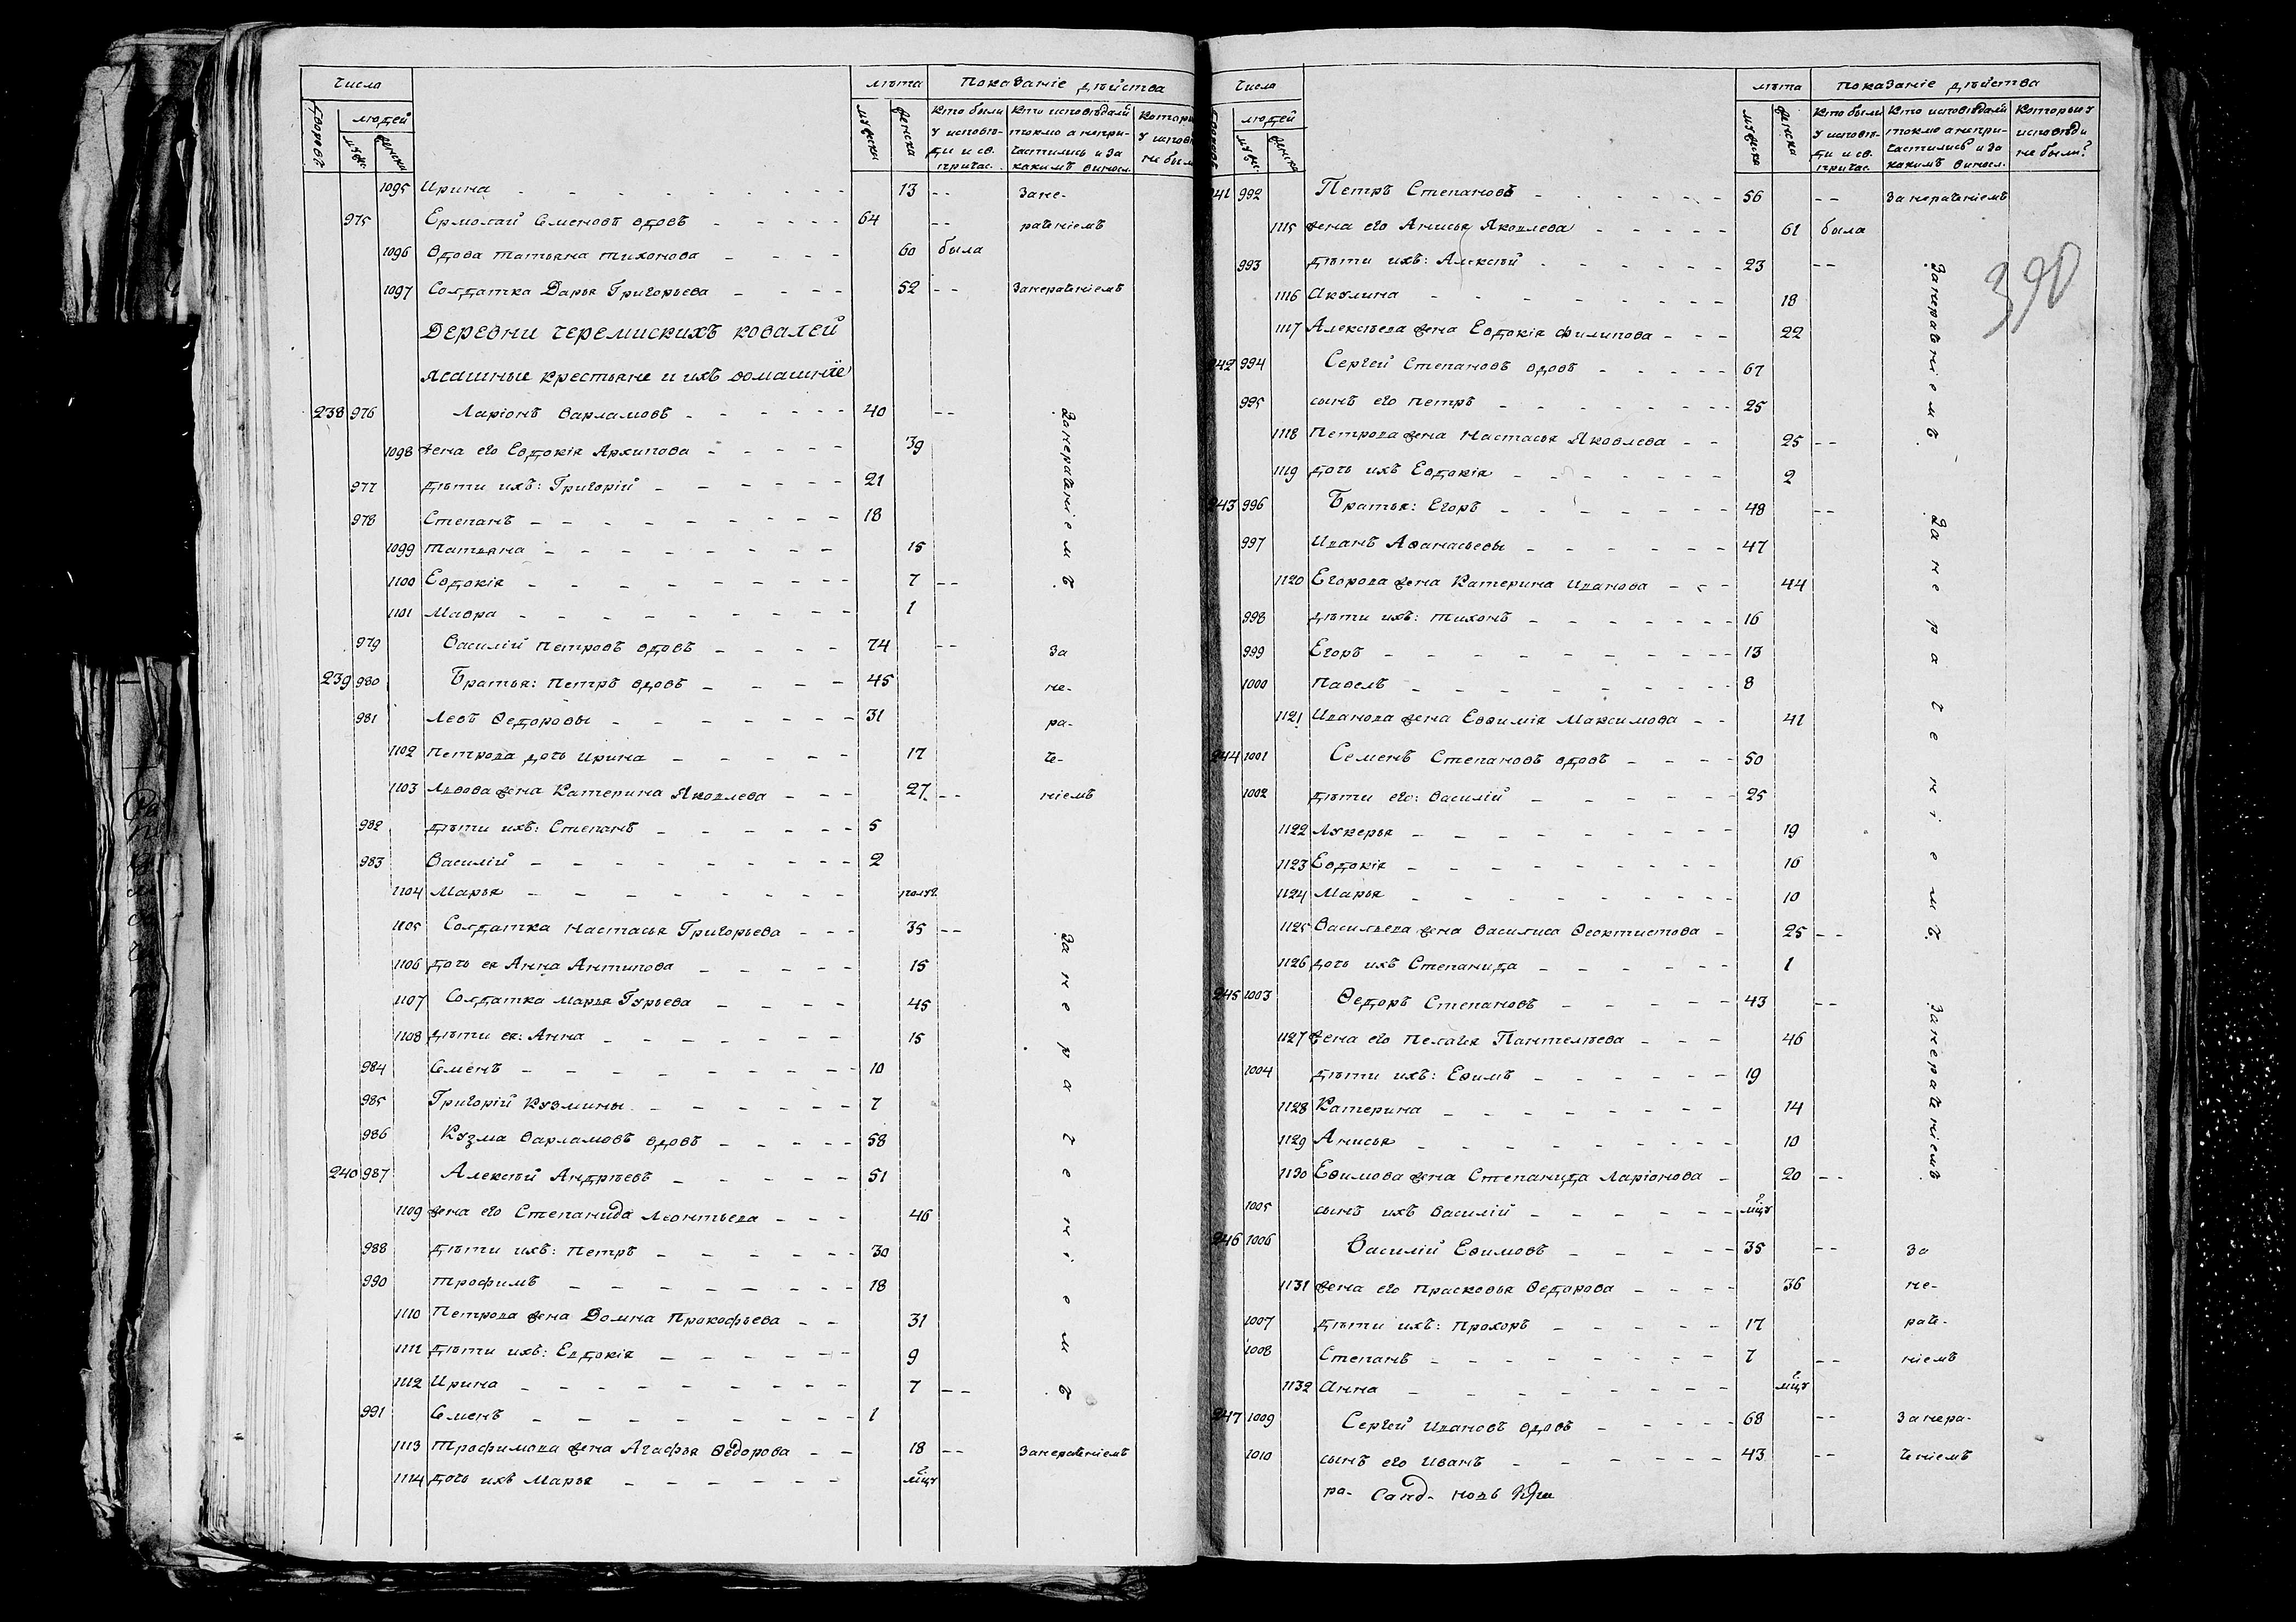 Число
лѣта Показаніе дѣйства
Дворовъ людей мужеска женска Кто были у исповѣди и св. причас. Кто исповѣдали токмо а непричастились и за какимъ винословіем
мужес. женска
1095 Ирина 13 -- Зане-
975 Ермолай Семеновъ вдовъ 64 -- раченіемъ
1096 Вдова Татьяна Тихонова 60 была
1097 Солдатка Дарья Григорьева 52 -- Занераченіемъ
Деревни черемискихъ ковалей
Ясашные крестьяне и ихъ домашніе
238 976 Ларіонъ Варламовъ 40 -- Занераченіемъ
1098 жена его Евдокія Архипова 39
977 дѣти ихъ: Григорій 21
978 Степанъ 18
1099 Татьяна 15
1100 Евдокія 7 --
1101 Мавра 1
979 Василій Петровъ вдовъ 74 -- За
239 980 Братья: Петръ вдовъ 45 не-
981 Левъ Ѳедоровы 31 ра-
1102 Петрова дочь Ирина 17 че-
1103 Львова жена Катерина Яковлева 27 -- ніемъ
982 дѣти ихъ: Степанъ 5
983 Василій 2
1104 Марья полуг.
1105 Солдатка Настасья Григорьева 35 -- Занераченіемъ
1106 дочь ея Анна Антипова 15
1107 Солдатка Марья Гурьева 45
1108 дѣти ея: Анна 15
984 Семенъ 10
985 Григорій Кузмины 7
986 Кузма Варламовъ вдовъ 58
240 987 Алексѣй Андрѣевъ 51
1109 жена его Степанида Леонтьева 46
988 дѣти ихъ: Петръ 30
990 Трофимъ 18
1110 Петрова жена Домна Прокофьева 31
1111 дѣти ихъ: Евдокія 9
1112 Ирина 7 --
991 Семенъ 1
1113 Трофимова жена Агафья Ѳедорова 18 -- Занераченіемъ
1114 дочь ихъ Марья мцу
Число
лѣта Показаніе дѣйства
людей мужеска женска Кто были у исповѣди и св. причас. Кто исповѣдали токмо а непричастились и за какимъ винosл. Которые у исповѣди не были?
мужес. женска
241 992 Петръ Степановъ 56 -- Занераченіемъ
1115 жена его Анисья Яковлева 61 была
390
993 дѣти ихъ: Алексѣй 23 -- Занераченіемъ
1116 Акулина 18
1117 Алексѣева жена Евдокія Филипова 22
242 994 Сергей Степановъ вдовъ 67
995 сынъ его Петръ 25
1118 Петрова жена Настасья Яковлева 25 --
1119 дочь ихъ Евдокія 2
243 996 Братья: Егоръ 48 -- Занераченіемъ
997 Иванъ Аѳанасьевы 47
1120 Егорова жена Катерина Иванова 44
998 дѣти ихъ: Тихонъ 16
999 Егоръ 13
1000 Павелъ 8
1121 Иванова жена Евѳимія Максимова 41
244 1001 Семенъ Степановъ вдовъ 50
1002 дѣти его: Василій 25
1122 Лукерья 19
1123 Евдокія 16
1124 Марья 10
1125 Васильева жена Василиса Ѳеоктистова 25 --
1126 дочь ихъ Степанида 1
245 1003 Ѳедоръ Степановъ 43 -- Занераченіемъ
1127 жена его Пелагея Пантелѣева 46
1004 дѣти ихъ: Еѳимъ 19
1128 Катерина 14
1129 Анисья 10
1130 Еѳимова жена Степанида Ларіонова 20 --
1005 сынъ ихъ Василій мцу
246 1006 Василій Еѳимовъ 35 -- За
1131 жена его Прасковья Ѳедорова 36 не-
1007 дѣти ихъ: Прохоръ 17 раче-
1008 Степанъ 7 -- ніемъ
1132 Анна мцу
247 1009 Сергей Ивановъ вдовъ 68 -- Занера-
1010 сынъ его Иванъ 43 -- ченіемъ